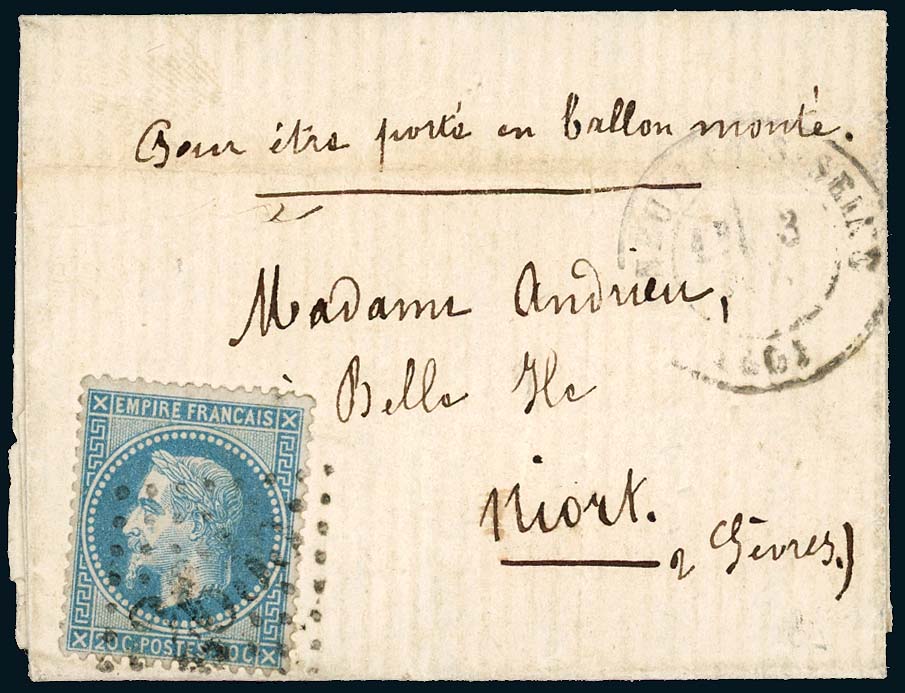 Pour être porté en ballon monté.
Madame Andrieu,
à Belle Ile
Niort.
2 Sèvres.)
SEINE
3
EMPIRE FRANÇAIS
20 C POSTES 20 C